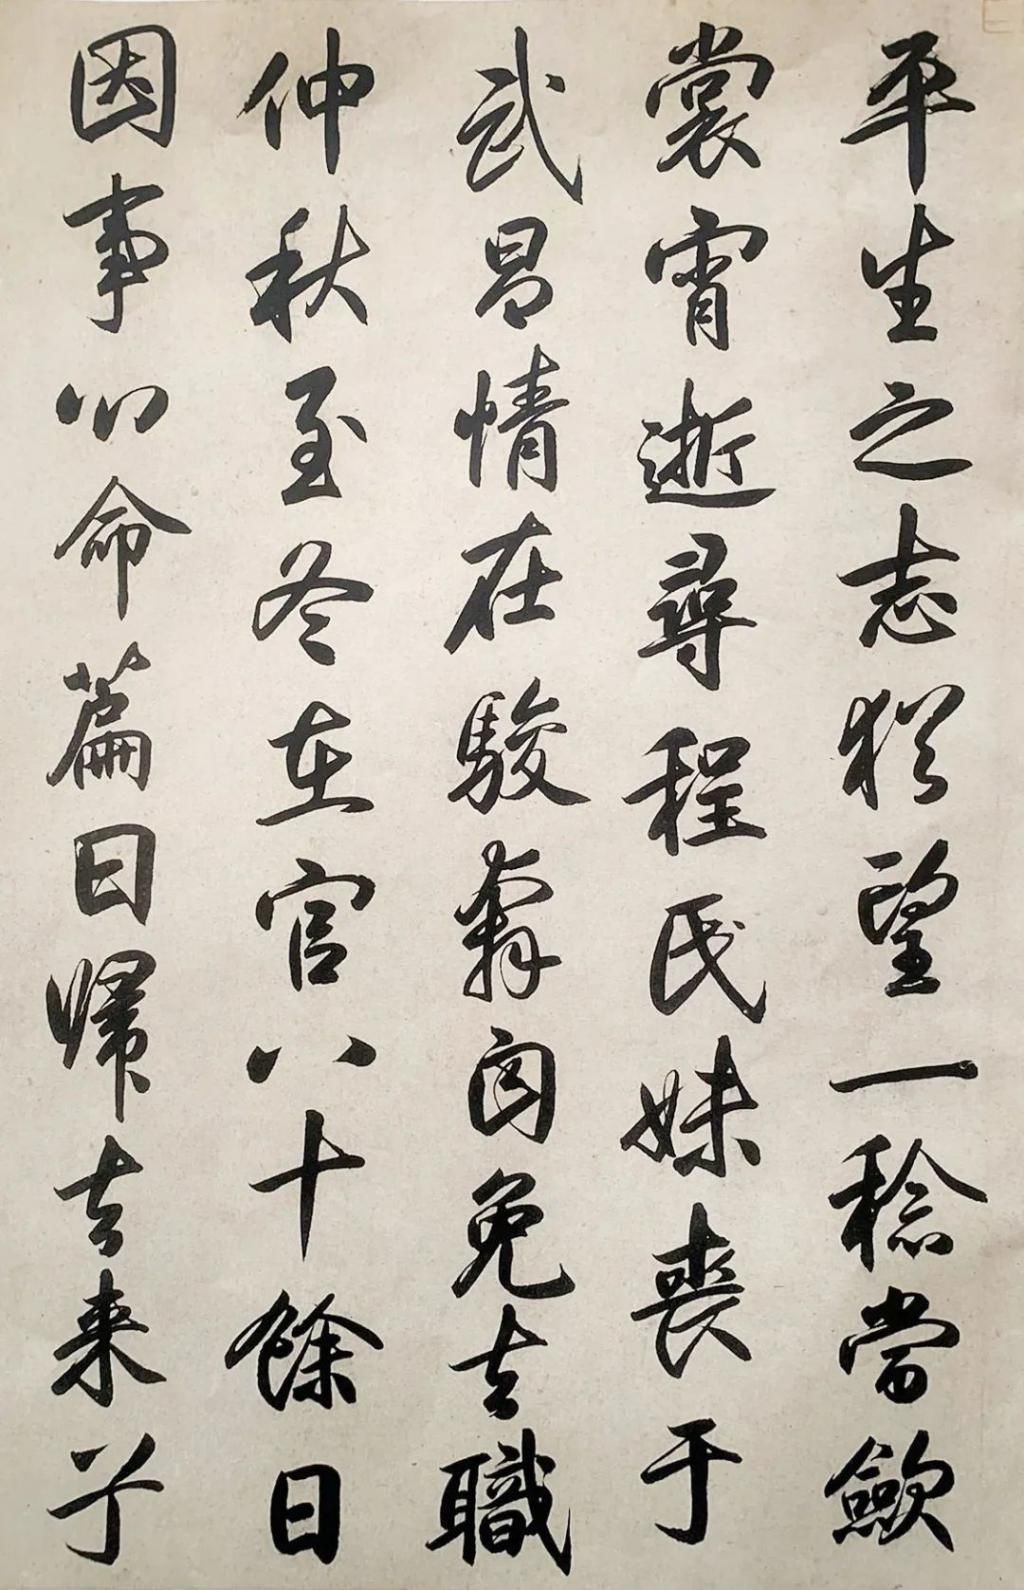 平生之志猶望一稔當斂
裳宵逝尋程氏妹喪于
武昌情在駿奔自免去職
仲秋至冬在官八十餘日
因事順命篇曰歸去来兮